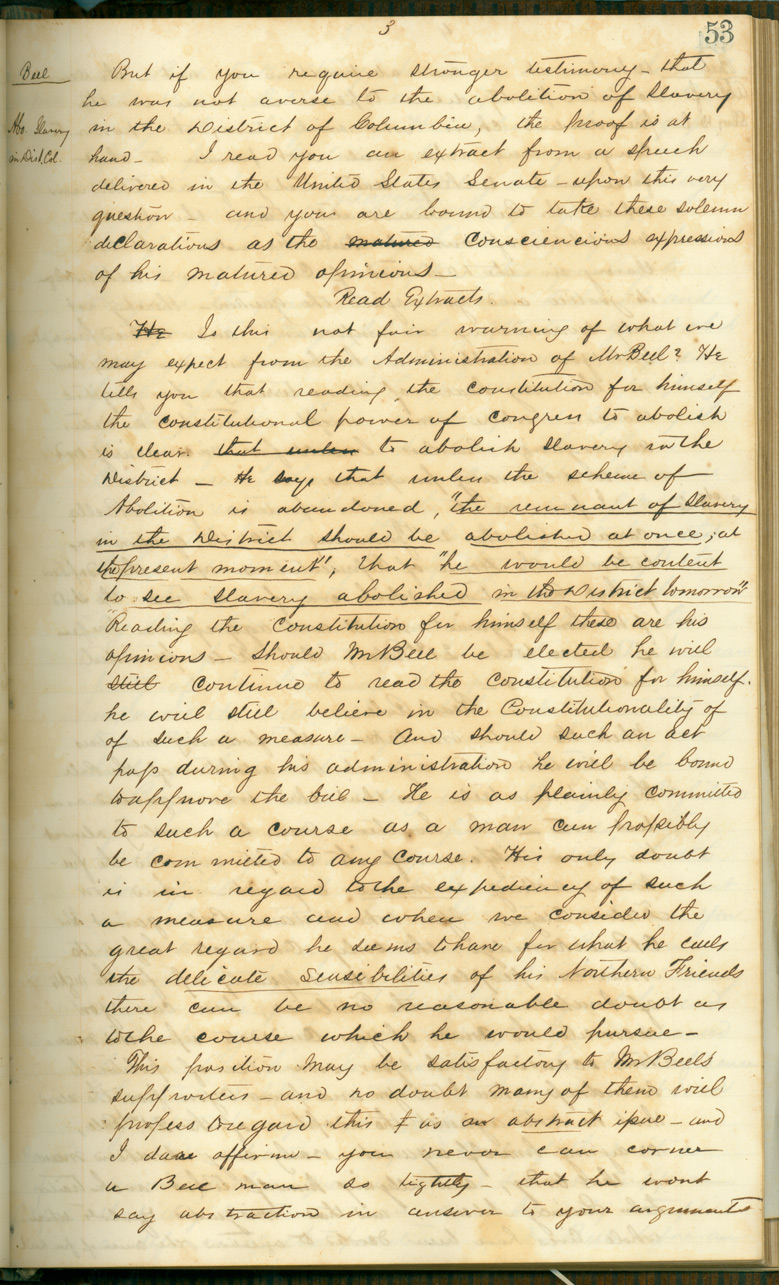 3
53
Bell
But if you require stronger testimony - that
he was not averse to the abolition of Slavery
Abo. Slavery
in the District of Columbia, the proof is at
in Dist. Col.
hand - I read you an extract from a speech
delivered in the United States Senate - upon this very
question - and you are bound to take these solemn
declarations as the matured consciencious expressions
of his matured opinions -
Read Extracts.
He Is this not fair warning of what we
may expect from the Administration of Mr Bell? He
tells you that reading the constitution for himself
the constitutional power of congress to abolish
is clear. that unless to abolish slavery in the
District - He says that unless the scheme of
Abolition is abandoned, "the remnant of slavery
in the District should be abolished at once, at
the present moment", that "he would be content
to see slavery abolished in the District tomorrow"
"Reading the Constitution for himself these are his
opinions - Should Mr Bell be elected he will
still continue to read the constitution for himself.
he will still believe in the Constitutionality of
of such a measure - And should such an act
pass during his administration he will be bound
to approve the bill - He is as plainly committed
to such a course as a man can possibly
be committed to any course. His only doubt
is in regard to the expediency of such
a measure and when we consider the
great regard he seems to have for what he calls
the delicate sensibilities of his Northern Friends
there can be no reasonable doubt as
to the course which he would pursue -
This position may be satisfactory to Mr Bell's
supporters - and no doubt many of them will
profess to regard this as an abstract issue - and
I dare affirm - you never can corner
a Bell man so tightly - that he wont
say abstraction in answer to your arguments